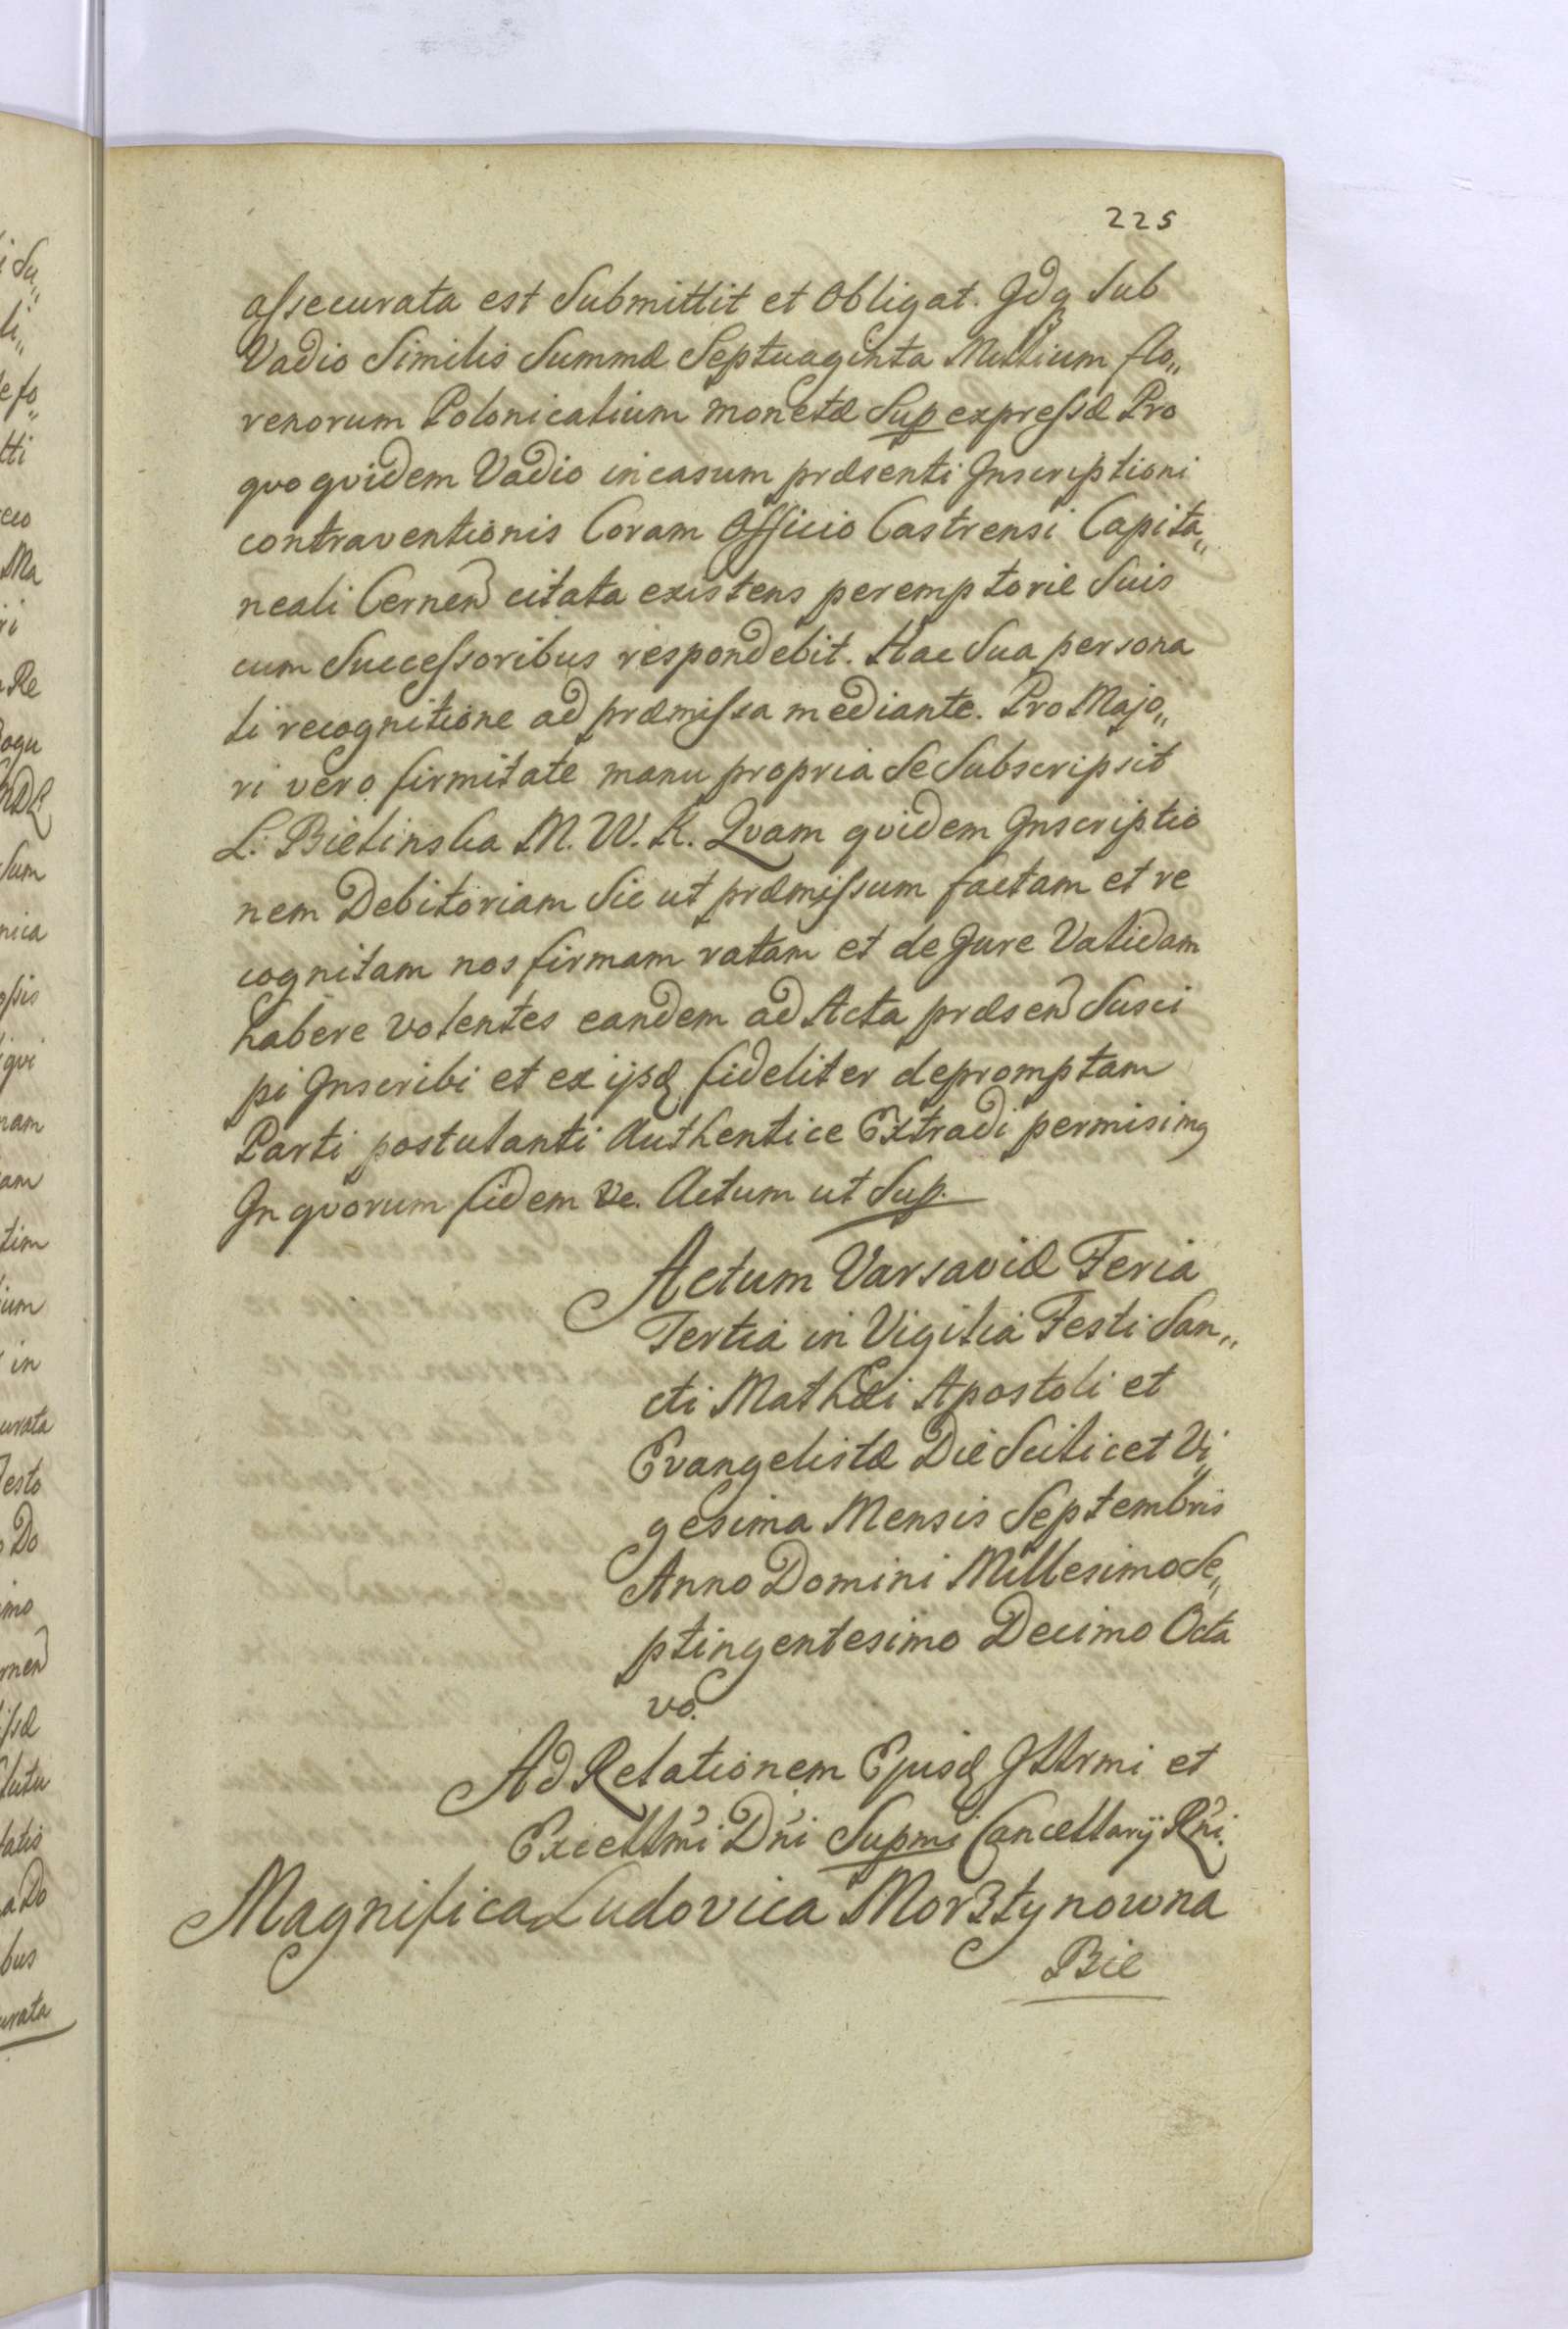 225
assecurata est Submittit et Obligat. Idq Sub
Vadio Similis Summæ Septuaginta Millium flo„
renorum Polonicalium monetæ Sup expressæ Pro
quo quidem Vadio in casum præsenti Inscriptioni
contraventionis Coram Officio Castrensi Capita„
neali Cernen citata existens peremptorie Suis
cum Successoribus respondebit. Hac Sua persona
li recognitione ad præmissa mediante. Pro Majo„
ri vero firmitate manu propria Se Subscripsit
L. Bielinska M. W. K. Quam quidem Inscriptio
nem Debitoriam Sic ut præmissum factam et re
cognitam nos firmam ratam et de Jure Validam
habere volentes eandem ad Acta præsen Susci
pi Inscribi et ex ijsd fideliter depromptam
Parti postulanti Authentice Extradi permisimq
In quorum fidem &c. Actum ut Sup.
Actum Varsaviæ Feria
Tertia in Vigilia Festi San„
cti Mathæi Apostoli et
Evangelistæ Die Scilicet Vi„
gesima Mensis Septembris
Anno Domini Millesimo Se„
ptingentesimo Decimo Octa
vo.
Ad Relationem Ejusd Illrmi et
Excellmi Dni Supmi Cancellarij Rni.
Magnifica Ludovica Morsztynowna
Bie